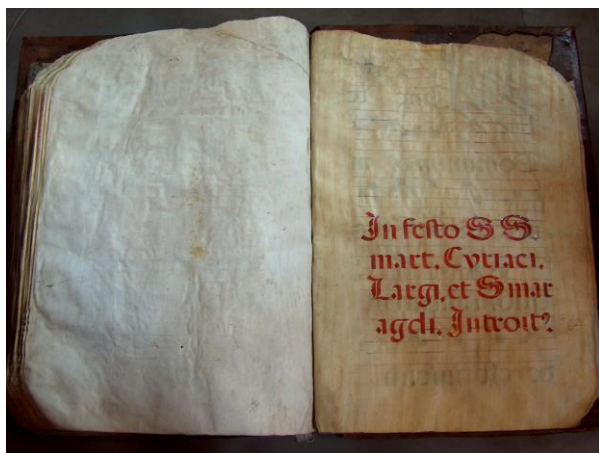 In festo S S.
mart. Cyriaci,
Largi, et Smar
agdi. Introit⁹